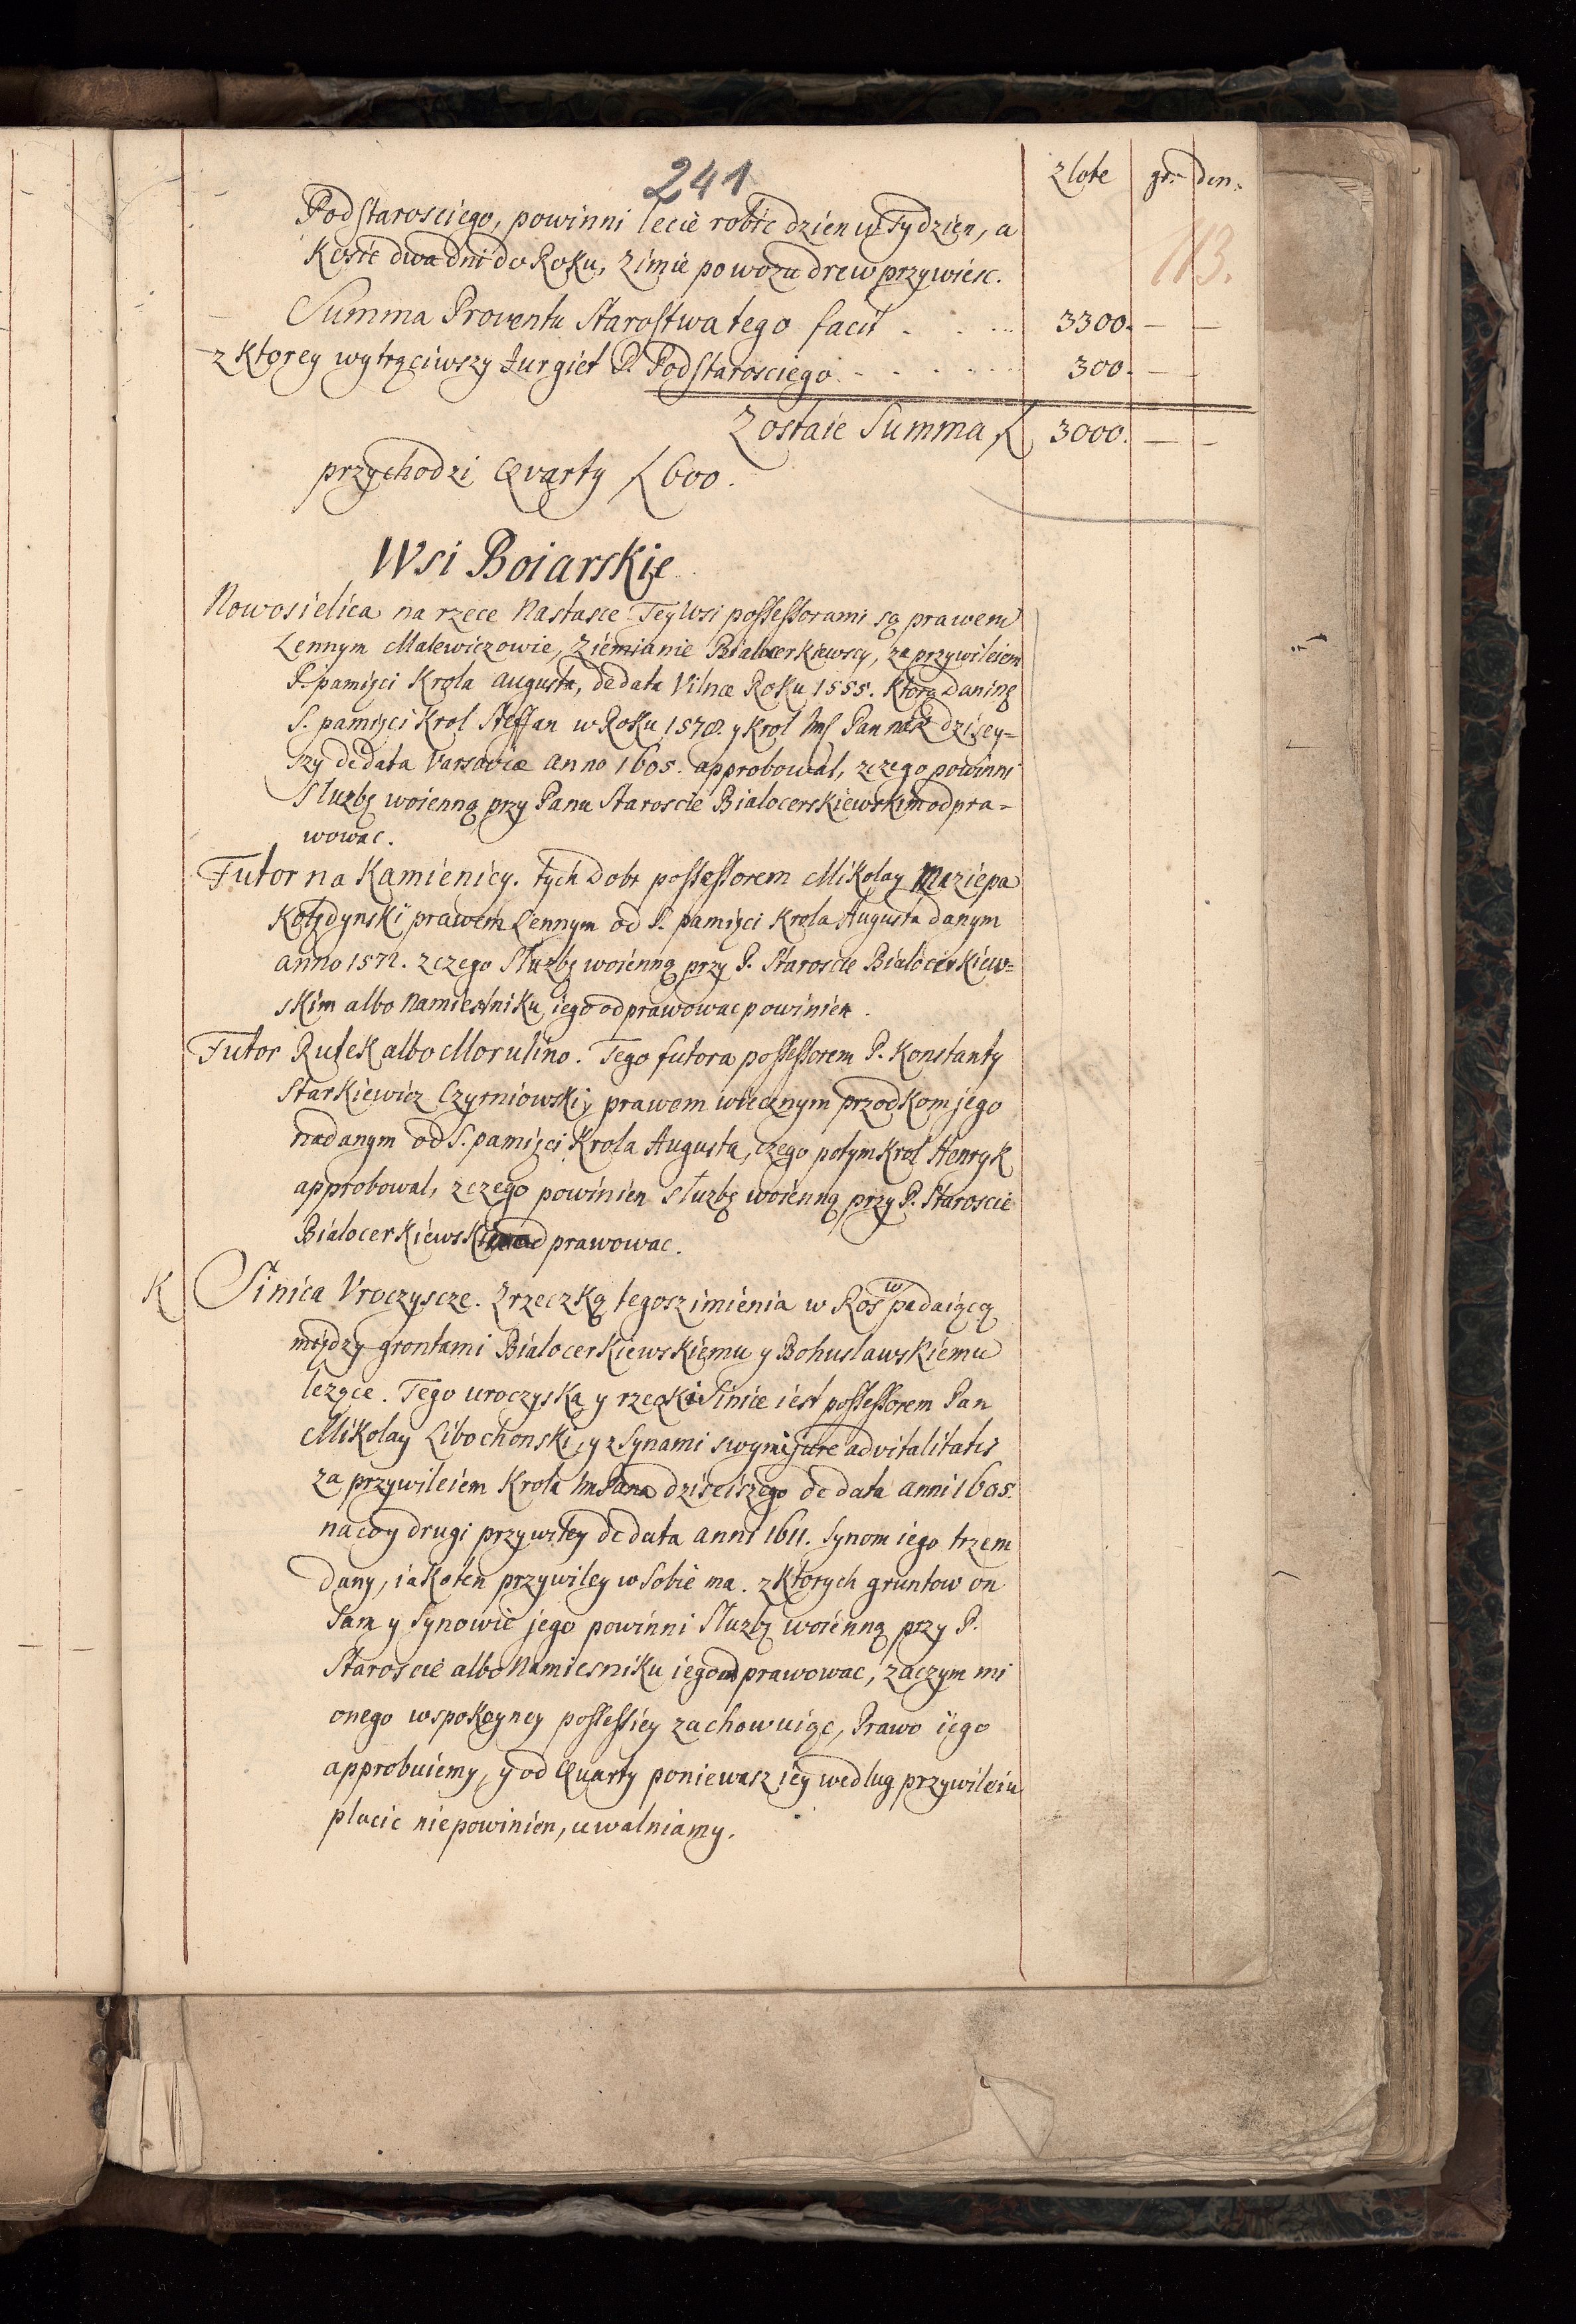 241
złote gr. den.
113.
Podstarosciego, powinni lecie robić dzien w Tydzien, a
Kosić dwa dni do Roku, Zimie po wozu drew przywiesc.
Summa Proventu Starostwa tego facit . . . . 3300. — —
z Ktorey wytrąciwszy Jurgiet P. Podstarosciego . . . . . . 300. — —
Zostaie Summa f. 3000. — —
przychodzi Qvarty f. 600.
Wsi Boiarskie
Nowosielica na rzece Nastasce Tey Wsi possessorami są prawem
Lennym Malewiczowie, Ziemianie Bialocerkiewscy, za przywileiem
S. pamięci Krola Augusta, de data Vilnæ Roku 1555. Ktorą daninę
S. pamięci Krol Steffan w Roku 1578. y Krol Jms Pan nasz dzisey=
szy de data Varsaviæ anno 1605. approbował, z czego powinni
Służbę woienną przy Panu Staroscie Bialocerskiewskim odpra=
wowac.
Futor na Kamienicy. tych Dobr possessorem Mikolay Maziepa
Kolędynski prawem Lennym od S. pamięci Krola Augusta danym
anno 1572. z czego Służbę woienną przy P. Staroscie Bialocerkiew=
skim albo Namiesniku iego odprawowac powinien.
Futor Rutek albo Morulino. Tego futora possessorem P. Konstanty
Starkiewicz Czyrniowskiy prawem wiecznym przodkom jego
nadanym od S. pamięci Krola Augusta, czego potym Krol Henryk
approbowal, z czego powinien służbę woienną przy P. Staroscie
Bialocerkiewskim odprawowac.
K Sinica Vroczyscze. Z rzeczką tegosz imienia w Ros wpadaiącą
między grontami Bialocerkiewskiemu y Bohuslawskiemu
leżące. Tego uroczyska y rzeczki Sinice iest possessorem Pan
Mikolay Libochonski, y z Synami swymi jure advitalitatis
za przywileiem Krola Jm Pana dzisieiszego de data anni 1605.
na coy drugi przywiley de data anni 1611. Synom iego trzem
dany, iako ten przywiley w Sobie ma. z Ktorych gruntow on
Sam y Synowie jego powinni Służbę woienną przy P.
Staroscie albo Namiesniku iego odprawowac, zaczym mi
onego w spokoyney possessiey zachowuiąc, Prawo iego
approbuiemy, y od Quarty poniewasz iey według przywileiu
płacic niepowinien, uwalniamy.